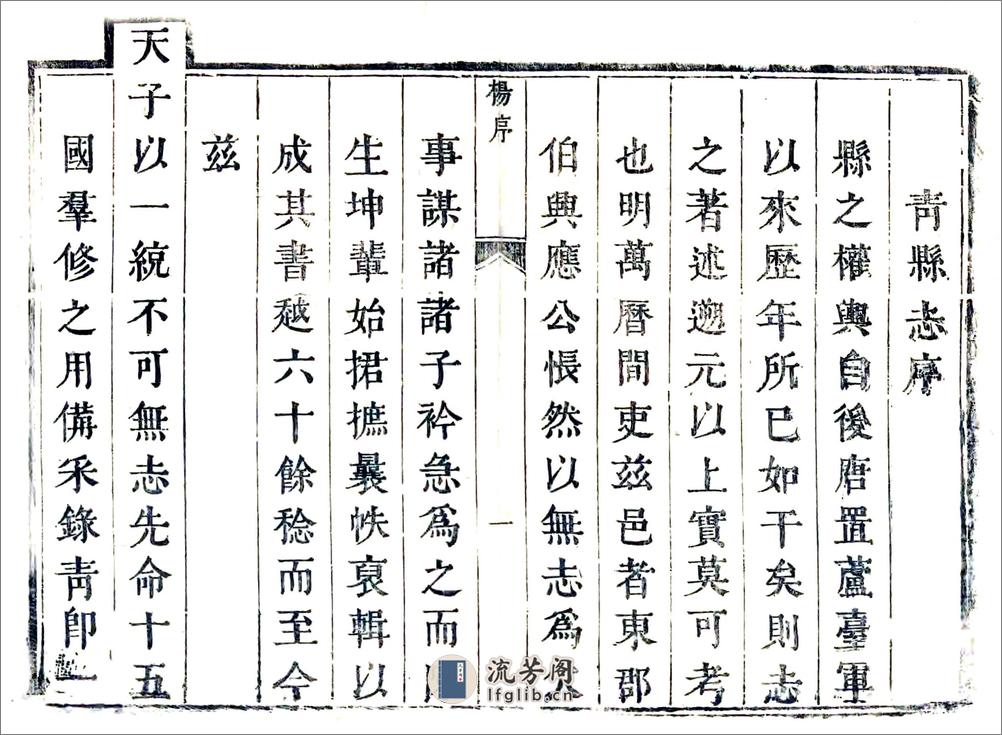 青縣志序
縣之權輿自後唐置蘆臺軍
以來歷年所已如干矣則志
之著述遡元以上實莫可考
也明萬曆間吏兹邑者東郡
伯興應公悵然以無志爲
楊序
一
事謀諸諸子衿急爲之而
生坤輩始捃摭曩帙裒輯以
成其書越六十餘稔而至今
兹
天子以一統不可無志先命十五
國羣修之用備采錄青卽
流芳阁
lfglib.cn